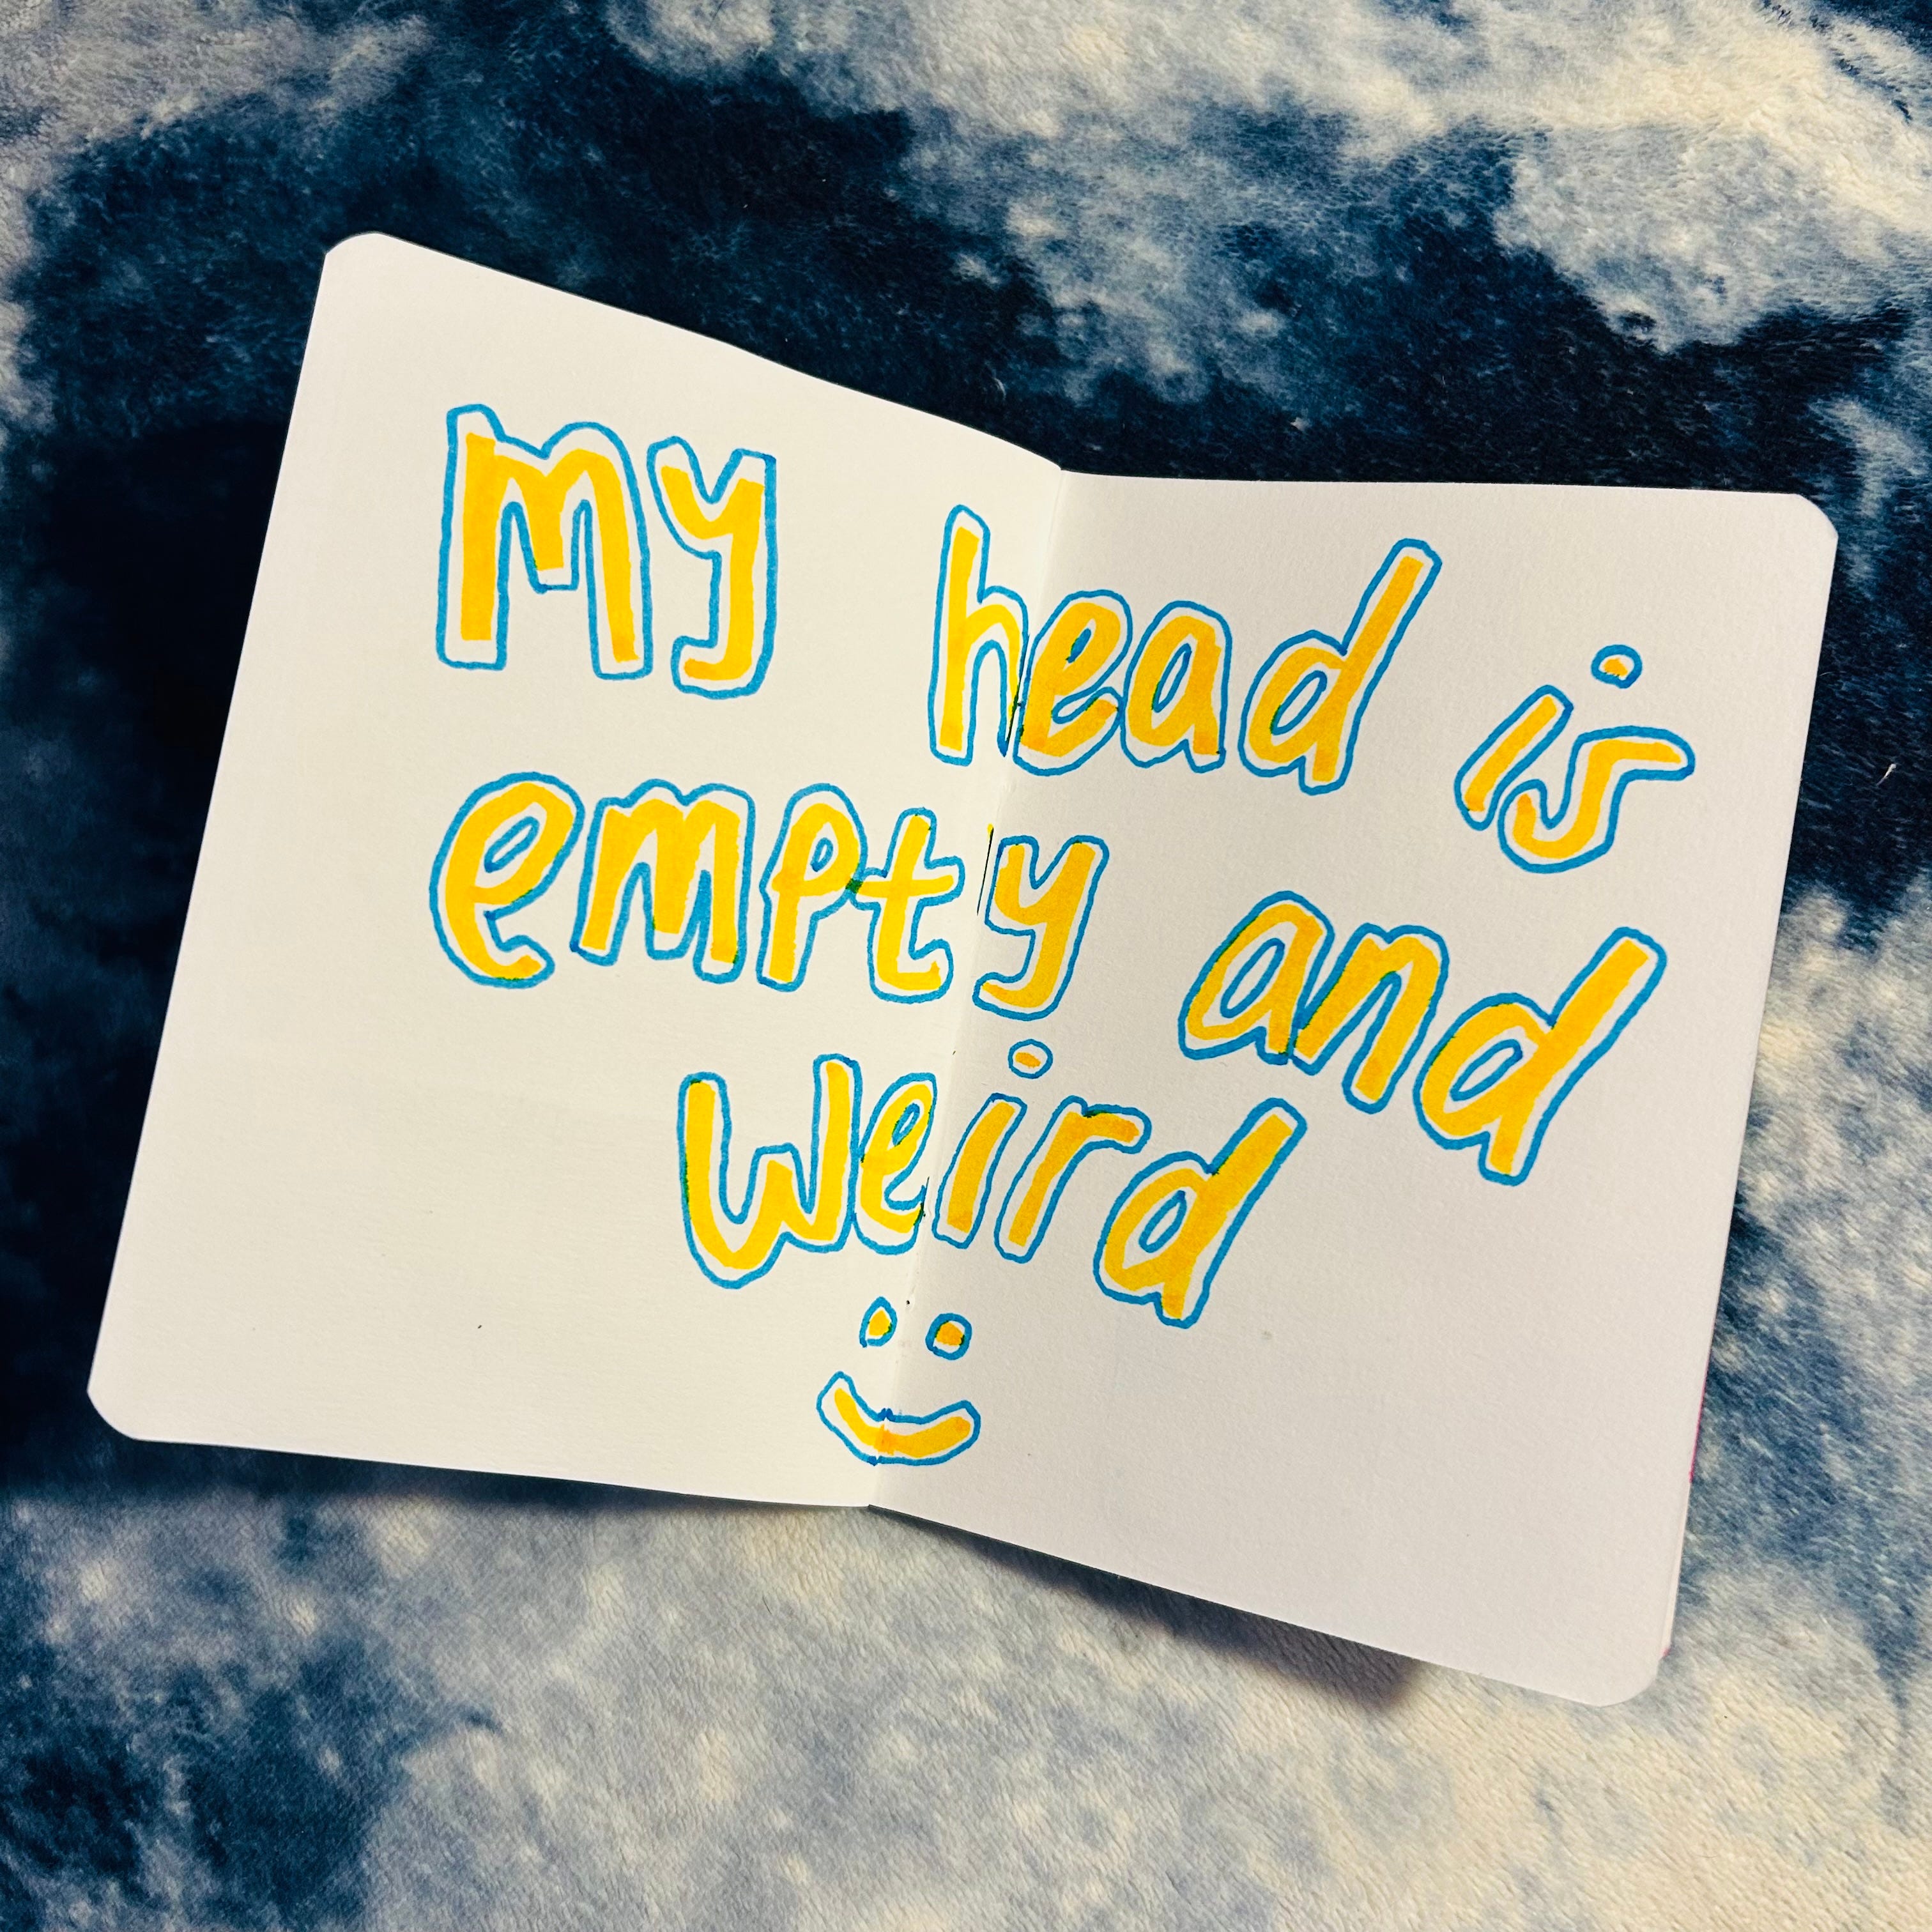 My head is
empty and
weird